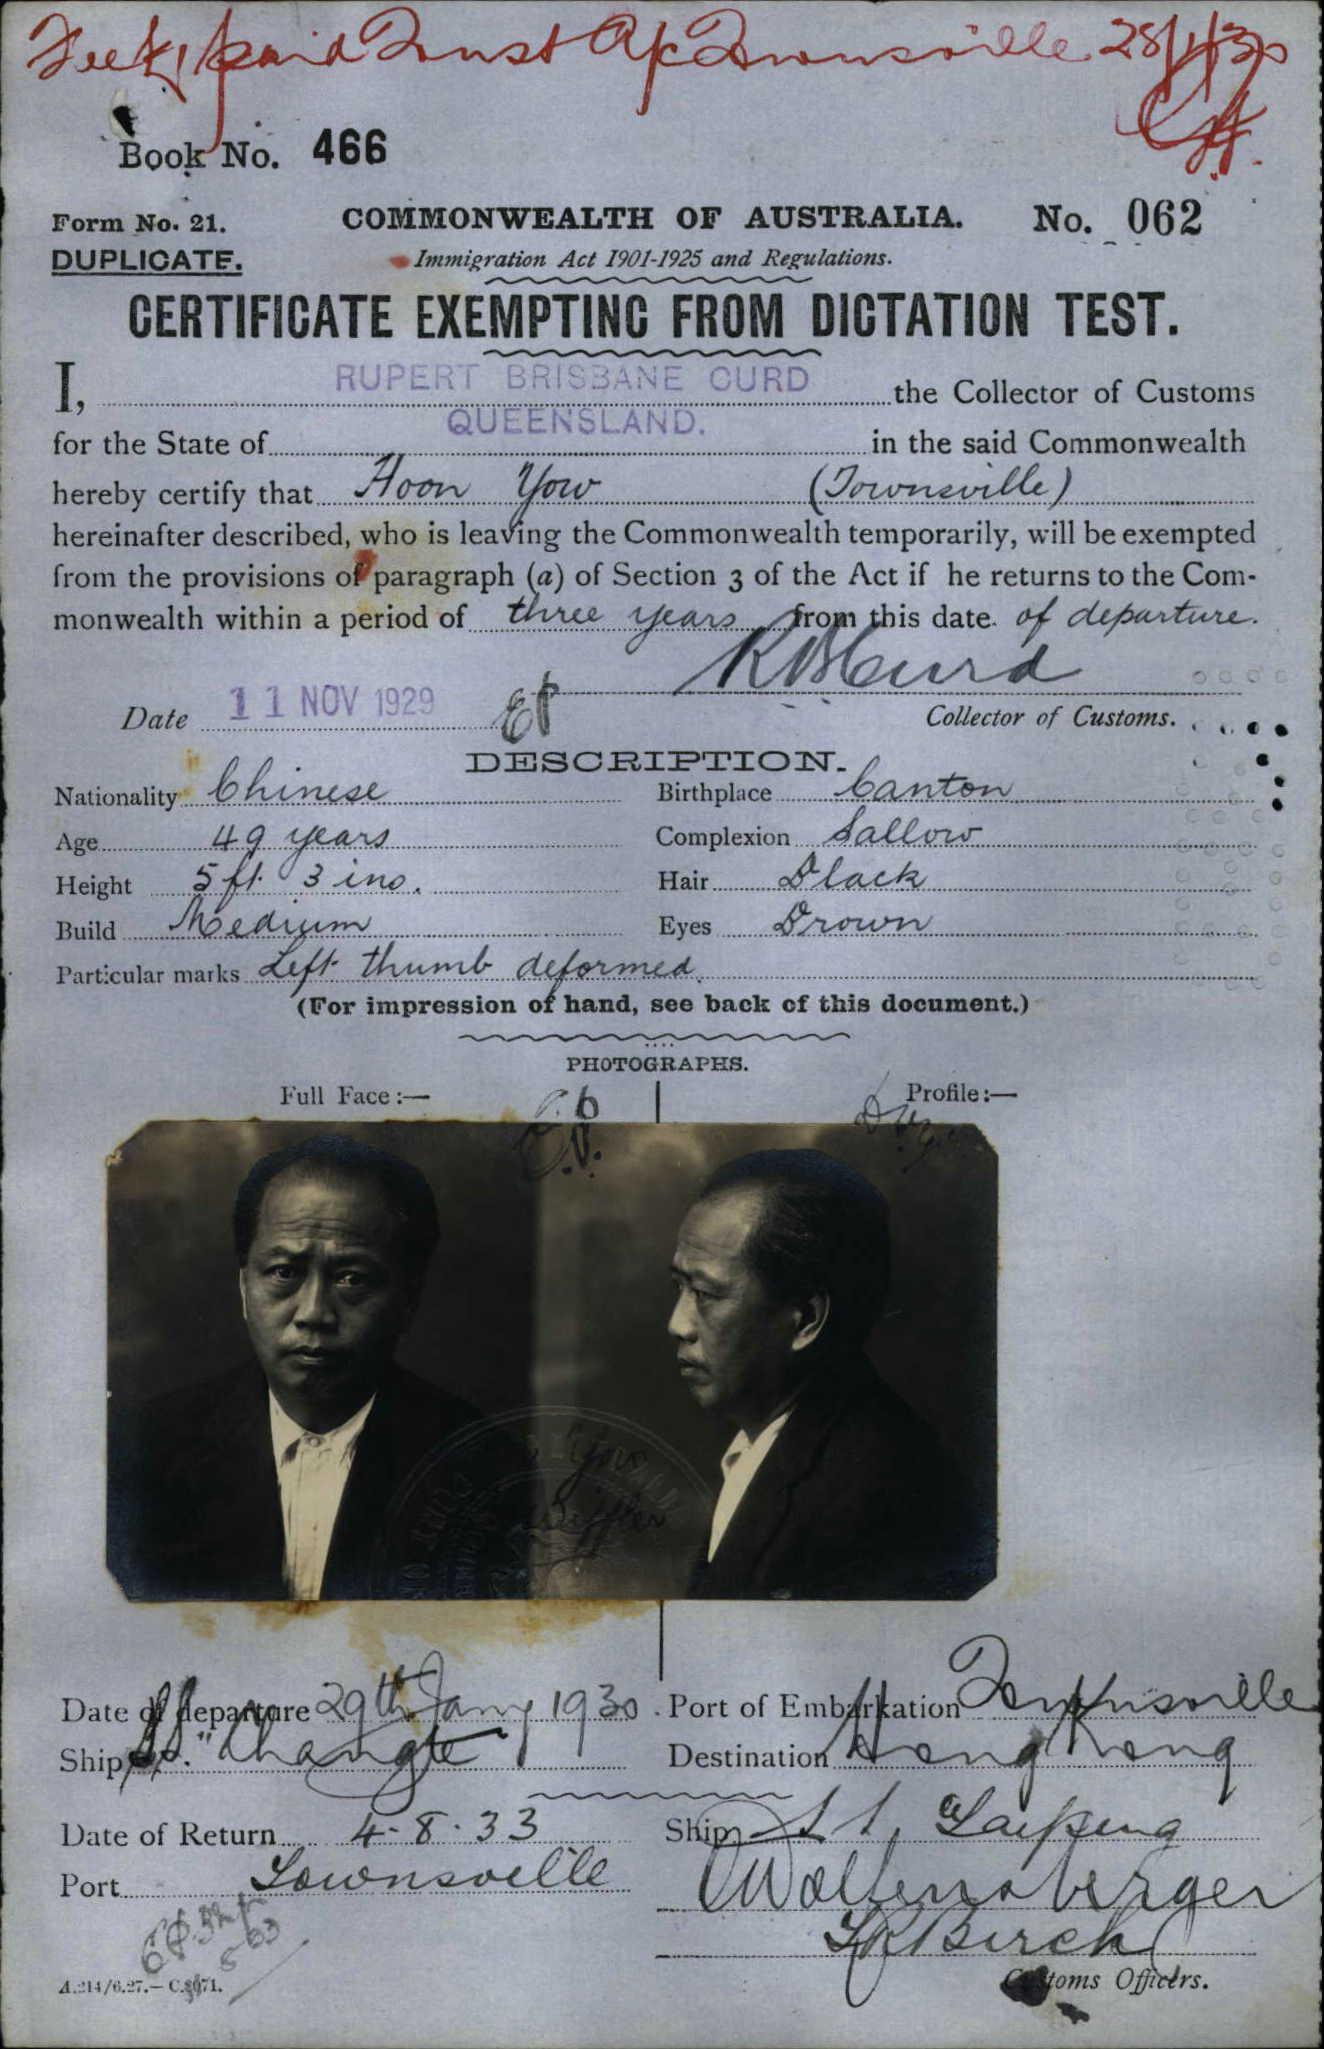 Fee £1 paid Trust A/c Townsville 28/1/30
Book No. 466
Form No. 21.
COMMONWEALTH OF AUSTRALIA.
No. 062
DUPLICATE.
Immigration Act 1901-1925 and Regulations.
CERTIFICATE EXEMPTING FROM DICTATION TEST.
I, RUPERT BRISBANE CURD the Collector of Customs
for the State of QUEENSLAND. in the said Commonwealth
hereby certify that Hoon Yow (Townsville)
hereinafter described, who is leaving the Commonwealth temporarily, will be exempted
from the provisions of paragraph (a) of Section 3 of the Act if he returns to the Com-
monwealth within a period of three years from this date of departure.
R B Curd
Date 11 NOV 1929
Collector of Customs.
DESCRIPTION.
Nationality Chinese Birthplace Canton
Age 49 years Complexion Sallow
Height 5 ft 3 ins. Hair Black
Build Medium Eyes Brown
Particular marks Left thumb deformed.
(For impression of hand, see back of this document.)
PHOTOGRAPHS.
Full Face :— Profile :—
Yow
Date of departure 29th Jany 1930 Port of Embarkation Townsville
Ship SS. "Changte" Destination Hong Kong
Date of Return 4-8-33 Ship SS Taiping
Port Townsville
Wolfensberger
Birch
Customs Officers.